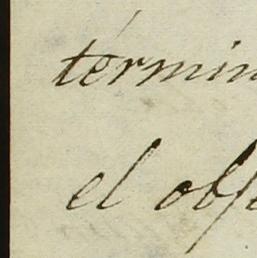 términ
el obs